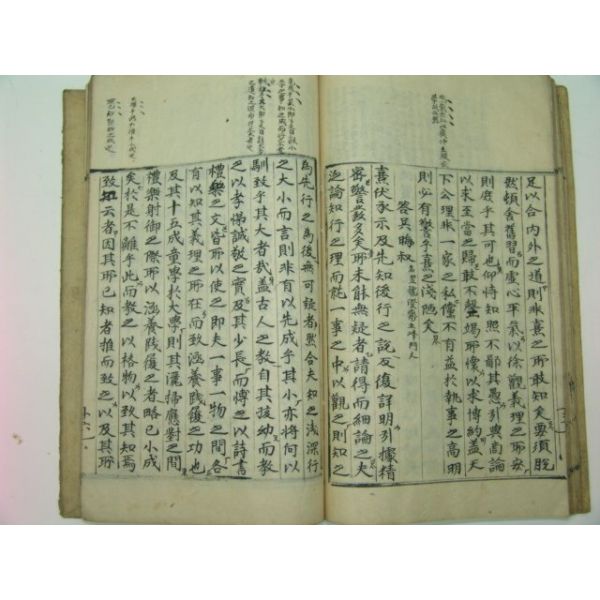 足以合內外之道則非熹之所敢知矣要須脫
然頓舍舊習而虛心平氣以徐觀義理之所安
則庶乎其可也仰恃知照不鄙其愚引與商論
以求至當之歸敢不罄竭所懷以求博約蓋天
下公理非一家之私儻不有益於執事之高明
則必有警乎熹之淺陋矣
答吳晦叔 名翌號澄齋五峰門人
熹伏承示及先知後行之說反復詳明引據精
密警發多矣所未能無疑者請得而細論之夫
泛論知行之理而就一事之中以觀之則知之
爲先行之爲後無可疑者然合夫知之淺深行
之大小而言則非有以先成乎其小亦將何以
馴致乎其大者哉蓋古人之教自其孩幼而教
之以孝悌誠敬之實及其少長而博之以詩書
禮樂之文皆所以使之即夫一事一物之間各
有以知其義理之所在而致涵養踐履之功也
及其十五成童學於大學則其灑掃應對之間
禮樂射御之際所以涵養踐履之者略已小成
矣於是不離乎此而教之以格物以致其知焉
致知云者因其所已知者推而致之以及其所